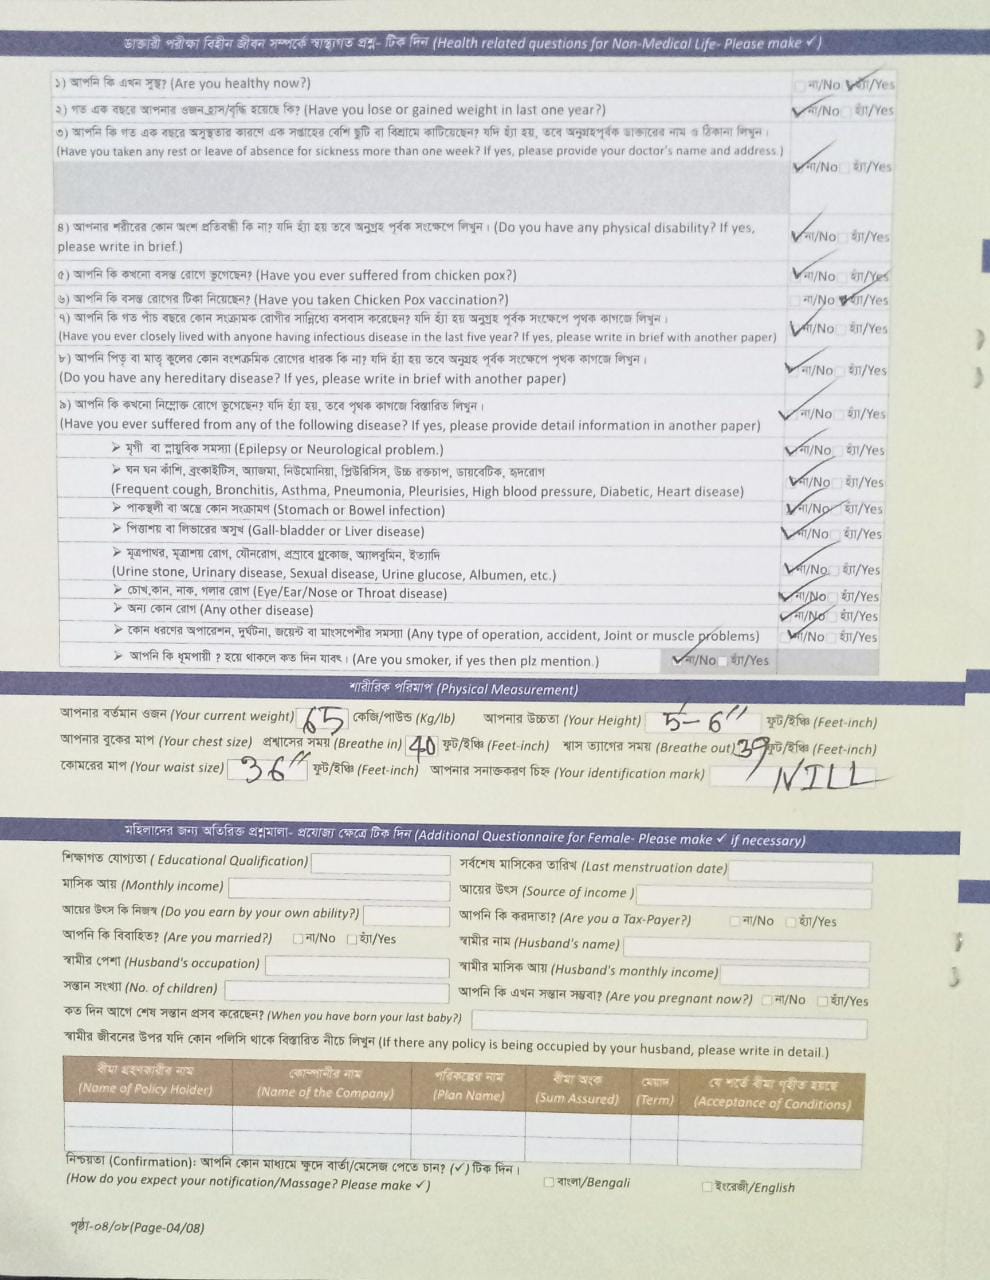 ডাক্তারী পরীক্ষা বিহীন জীবন সম্পর্কে স্বাস্থ্যগত প্রশ্ন- টিক দিন (Health related questions for Non-Medical Life- Please make ✓)
১) আপনি কি এখন সুস্থ? (Are you healthy now?) না/No ✓হ্যাঁ/Yes
২) গত এক বছরে আপনার ওজন হ্রাস/বৃদ্ধি হয়েছে কি? (Have you lose or gained weight in last one year?) ✓না/No হ্যাঁ/Yes
৩) আপনি কি গত এক বছরে অসুস্থতার কারণে এক সপ্তাহের বেশি ছুটি বা বিশ্রামে কাটিয়েছেন? যদি হ্যাঁ হয়, তবে অনুগ্রহপূর্বক ডাক্তারের নাম ও ঠিকানা লিখুন।
(Have you taken any rest or leave of absence for sickness more than one week? If yes, please provide your doctor's name and address.)
✓না/No হ্যাঁ/Yes
৪) আপনার শরীরের কোন অংশ প্রতিবন্ধী কি না? যদি হ্যাঁ হয় তবে অনুগ্রহ পূর্বক সংক্ষেপে লিখুন। (Do you have any physical disability? If yes,
please write in brief.) ✓না/No হ্যাঁ/Yes
৫) আপনি কি কখনো বসন্ত রোগে ভুগেছেন? (Have you ever suffered from chicken pox?) ✓না/No হ্যাঁ/Yes
৬) আপনি কি বসন্ত রোগের টিকা নিয়েছেন? (Have you taken Chicken Pox vaccination?) না/No ✓হ্যাঁ/Yes
৭) আপনি কি গত পাঁচ বছরে কোন সংক্রামক রোগীর সান্নিধ্যে বসবাস করেছেন? যদি হ্যাঁ হয় অনুগ্রহ পূর্বক সংক্ষেপে পৃথক কাগজে লিখুন।
(Have you ever closely lived with anyone having infectious disease in the last five year? If yes, please write in brief with another paper) ✓না/No হ্যাঁ/Yes
৮) আপনি পিতৃ বা মাতৃ কুলের কোন বংশক্রমিক রোগের ধারক কি না? যদি হ্যাঁ হয় তবে অনুগ্রহ পূর্বক সংক্ষেপে পৃথক কাগজে লিখুন।
(Do you have any hereditary disease? If yes, please write in brief with another paper) ✓না/No হ্যাঁ/Yes
৯) আপনি কি কখনো নিম্নোক্ত রোগে ভুগেছেন? যদি হ্যাঁ হয়, তবে পৃথক কাগজে বিস্তারিত লিখুন।
(Have you ever suffered from any of the following disease? If yes, please provide detail information in another paper) ✓না/No হ্যাঁ/Yes
➢ মৃগী বা স্নায়ুবিক সমস্যা (Epilepsy or Neurological problem.) ✓না/No হ্যাঁ/Yes
➢ ঘন ঘন কাঁশি, ব্রংকাইটিস, অ্যাজমা, নিউমোনিয়া, প্লিউরিসিস, উচ্চ রক্তচাপ, ডায়বেটিক, হৃদরোগ
(Frequent cough, Bronchitis, Asthma, Pneumonia, Pleurisies, High blood pressure, Diabetic, Heart disease) ✓না/No হ্যাঁ/Yes
➢ পাকস্থলী বা অন্ত্রে কোন সংক্রামণ (Stomach or Bowel infection) ✓না/No হ্যাঁ/Yes
➢ পিত্তাশয় বা লিভারের অসুখ (Gall-bladder or Liver disease) ✓না/No হ্যাঁ/Yes
➢ মূত্রপাথর, মূত্রাশয় রোগ, যৌনরোগ, প্রস্রাবে গ্লুকোজ, অ্যালবুমিন, ইত্যাদি
(Urine stone, Urinary disease, Sexual disease, Urine glucose, Albumen, etc.) ✓না/No হ্যাঁ/Yes
➢ চোখ,কান, নাক, গলার রোগ (Eye/Ear/Nose or Throat disease) ✓না/No হ্যাঁ/Yes
➢ অন্য কোন রোগ (Any other disease) ✓না/No হ্যাঁ/Yes
➢ কোন ধরণের অপারেশন, দুর্ঘটনা, জয়েন্ট বা মাংসপেশীর সমস্যা (Any type of operation, accident, Joint or muscle problems) ✓না/No হ্যাঁ/Yes
➢ আপনি কি ধূমপায়ী ? হয়ে থাকলে কত দিন যাবৎ। (Are you smoker, if yes then plz mention.) ✓না/No হ্যাঁ/Yes
শারীরিক পরিমাপ (Physical Measurement)
আপনার বর্তমান ওজন (Your current weight) 65 কেজি/পাউন্ড (Kg/lb) আপনার উচ্চতা (Your Height) 5-6" ফুট/ইঞ্চি (Feet-inch)
আপনার বুকের মাপ (Your chest size) প্রশ্বাসের সময় (Breathe in) 40 ফুট/ইঞ্চি (Feet-inch) শ্বাস ত্যাগের সময় (Breathe out) 39 ফুট/ইঞ্চি (Feet-inch)
কোমরের মাপ (Your waist size) 36" ফুট/ইঞ্চি (Feet-inch) আপনার সনাক্তকরণ চিহ্ন (Your identification mark) NILL
মহিলাদের জন্য অতিরিক্ত প্রশ্নমালা- প্রযোজ্য ক্ষেত্রে টিক দিন (Additional Questionnaire for Female- Please make ✓ if necessary)
শিক্ষাগত যোগ্যতা ( Educational Qualification) সর্বশেষ মাসিকের তারিখ (Last menstruation date)
মাসিক আয় (Monthly income) আয়ের উৎস (Source of income )
আয়ের উৎস কি নিজস্ব (Do you earn by your own ability?) আপনি কি করদাতা? (Are you a Tax-Payer?) না/No হ্যাঁ/Yes
আপনি কি বিবাহিত? (Are you married?) না/No হ্যাঁ/Yes স্বামীর নাম (Husband's name)
স্বামীর পেশা (Husband's occupation) স্বামীর মাসিক আয় (Husband's monthly income)
সন্তান সংখ্যা (No. of children) আপনি কি এখন সন্তান সম্ভবা? (Are you pregnant now?) না/No হ্যাঁ/Yes
কত দিন আগে শেষ সন্তান প্রসব করেছেন? (When you have born your last baby?)
স্বামীর জীবনের উপর যদি কোন পলিসি থাকে বিস্তারিত নীচে লিখুন (If there any policy is being occupied by your husband, please write in detail.)
বীমা গ্রহণকারীর নাম (Name of Policy Holder) কোম্পানীর নাম (Name of the Company) পরিকল্পের নাম (Plan Name) বীমা অংক (Sum Assured) মেয়াদ (Term) যে শর্তে বীমা গৃহীত হয়েছে (Acceptance of Conditions)
নিশ্চয়তা (Confirmation): আপনি কোন মাধ্যমে ক্ষুদে বার্তা/মেসেজ পেতে চান? (✓) টিক দিন।
(How do you expect your notification/Massage? Please make ✓) বাংলা/Bengali ইংরেজী/English
পৃষ্ঠা-০৪/০৮(Page-04/08)